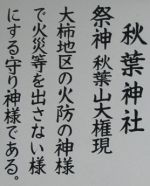 秋葉神社
祭神 秋葉山大権現
大柿地区の火防の神様
で火災等を出さない様
にする守り神様である。